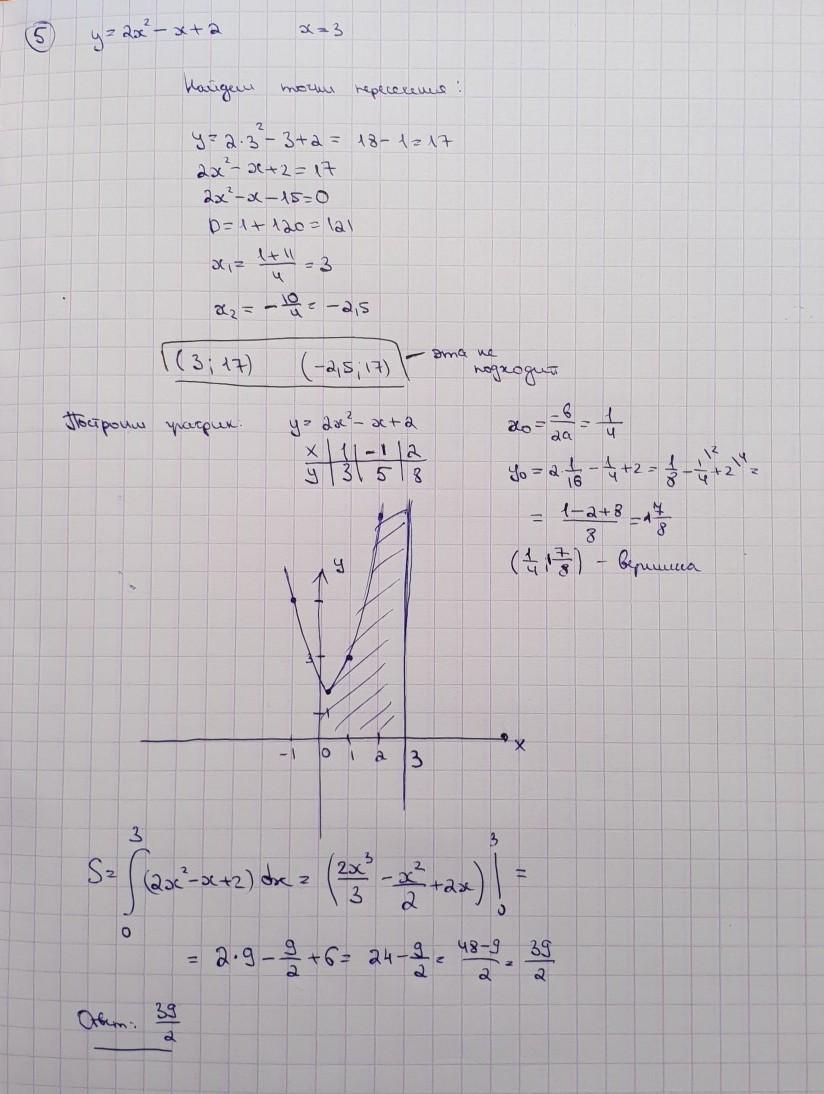 5 y = 2x² - x + 2 x = 3
Найдем точки пересечения:
y = 2·3² - 3 + 2 = 18 - 1 = 17
2x² - x + 2 = 17
2x² - x - 15 = 0
D = 1 + 120 = 121
x₁ = (1+11)/4 = 3
x₂ = -10/4 = -2,5
(3; 17) (-2,5; 17) - эта не
подходит
Построим график: y = 2x² - x + 2
x | 1 | -1 | 2
y | 3 | 5 | 8
x₀ = -b/2a = 1/4
y₀ = 2·1/16 - 1/4 + 2 = 1/8 - 1/4\2 + 2\4 =
= (1-2+8)/8 = 1 7/8
(1/4; 1 7/8) - вершина
y
3
1
-1 0 1 2 3 x
S = ∫₀³ (2x² - x + 2) dx = (2x³/3 - x²/2 + 2x) |₀³ =
= 2·9 - 9/2 + 6 = 24 - 9/2 = (48-9)/2 = 39/2
Ответ: 39/2